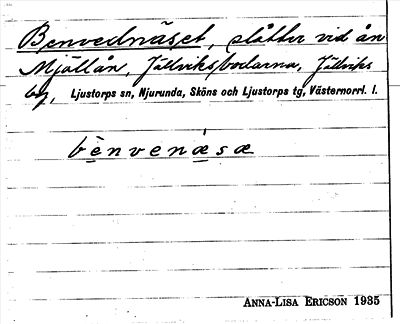 Benvednäset, slåtter vid ån
Mjällån, Jällviksbodarna, Jällviks
by, Ljustorps sn, Njurunda, Sköns och Ljustorps tg, Västernorrl. l.
bènvenæ̀sæ
ANNA-LISA ERICSON 1935